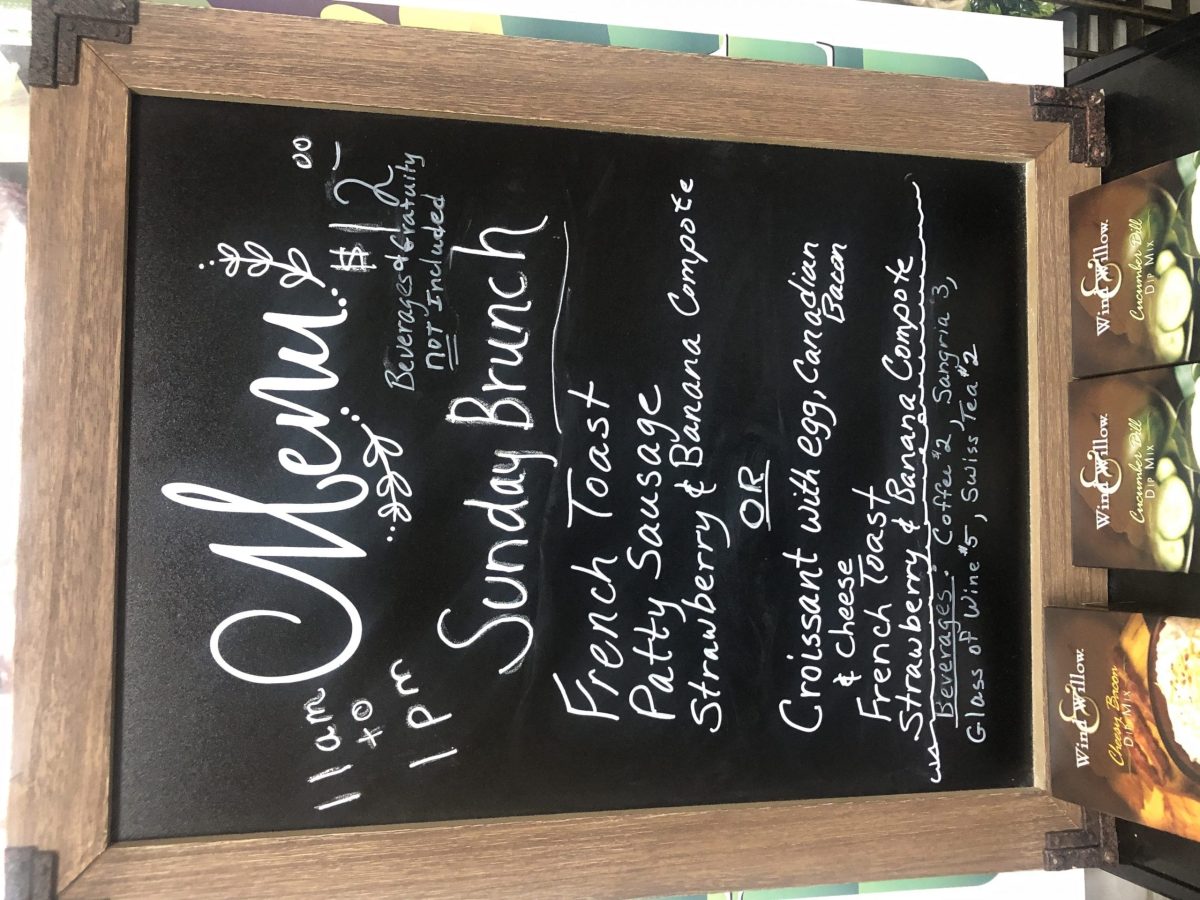 Menu
11 am
to
1 pm
$12.00
Beverages & Gratuity
NOT Included
Sunday Brunch
French Toast
Patty Sausage
Strawberry & Banana Compote
OR
Croissant with egg, Canadian
Bacon
& cheese
French Toast
Strawberry & Banana Compote
Beverages: Coffee $2, Sangria 3,
Glass of Wine $5, Swiss Tea $2
Wind & Willow.
Cheesy Bacon
DIP MIX
Wind & Willow.
Cucumber Dill
DIP MIX
Wind & Willow.
Cucumber Dill
DIP MIX